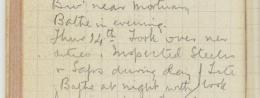 Biv' near Mortuary
Bathe in evening.
Thurs 14th Took over new
duties, Inspected Steeles
& Saps during day. Late
Bathe at night with Cook